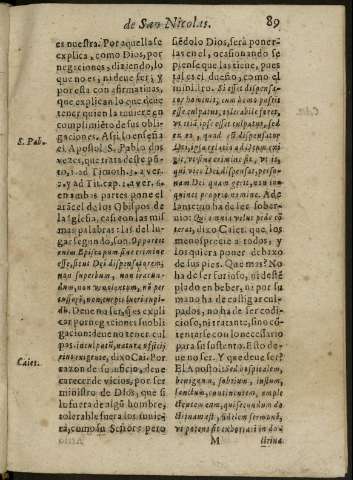 de San Nicolas. 89
es nuestra. Por aquella se
explica, como Dios, por
negaciones, diziendo, lo
que no es, ni deue ser; y
por esta con afirmatiuas,
que explican lo que deue
tener quien la tuuiere en
cumplimiēto de sus obli-
gaciones. Assi lo enseña
S. Pab.
el Apostol S. Pablo dos
vezes, que trata deste pū-
to, 1. ad Timoth. 3. ver.
2. y ad Tit. cap. 1. a ver. 6.
en ambas partes pone el
arācel de los Obispos de
la Iglesia, casi con las mis
mas palabras: las del lu-
gar segundo, son. Oportet
enim Episcopum sine crimine
esse, sicut Dei dispensatorem,
non superbum, non iracun-
dum, non vinolentum, nō per
cussorē, non turpis lucri cupi-
dū. Deue no
car por negaciones su obli
gacion: deue no tener cul-
pas
Caiet.
pius exigente, dixo Cai. Por
razon de su oficio, deue
carecer de vicios, por ser
ministro de Dios, que si
lo fuera de algū hombre,
tolerable fuera los tuuie-
ra, como su Señor; pero
siēdolo Dios, serà poner-
las en el, ocasionando se
piense que las tiene, pues
tal es el dueño, como el
ministro. Si esset dispensa-
tor hominis, cum homo possit
esse culpatus, tolerabile foret,
vt &
ex eo, quod est dispensator
Dei,
git, vt sine crimine sit, vt is,
qui vice Dei dispensat, perso-
nam Dei quam gerit, non in-
quinet propria crimine. Ade-
lante: nunca ha de ser sober-
uio: Qui omnia velut pede cō
teras, dixo Caiet. que los
menosprecie a todos, y
los quiera poner debaxo
de sus pies. Que mas? No
ha de ser furioso, ni desté
plado en beber, ni por su
mano ha de castigar cul-
pados, no ha de ser codi-
cioso, ni tratante, sino cō
tentarse con lo necessario
para su sustento. Esto de-
ue no ser. Y que deue ser?
El Apostol: Sed hospitalem,
benignum, sobrium, iustum,
sanctum, continentem, ample
ctentem eum, qui secundum do
ctrinam est, fidelem sermonē,
vt potens sit exhortari in do-
M ctrina